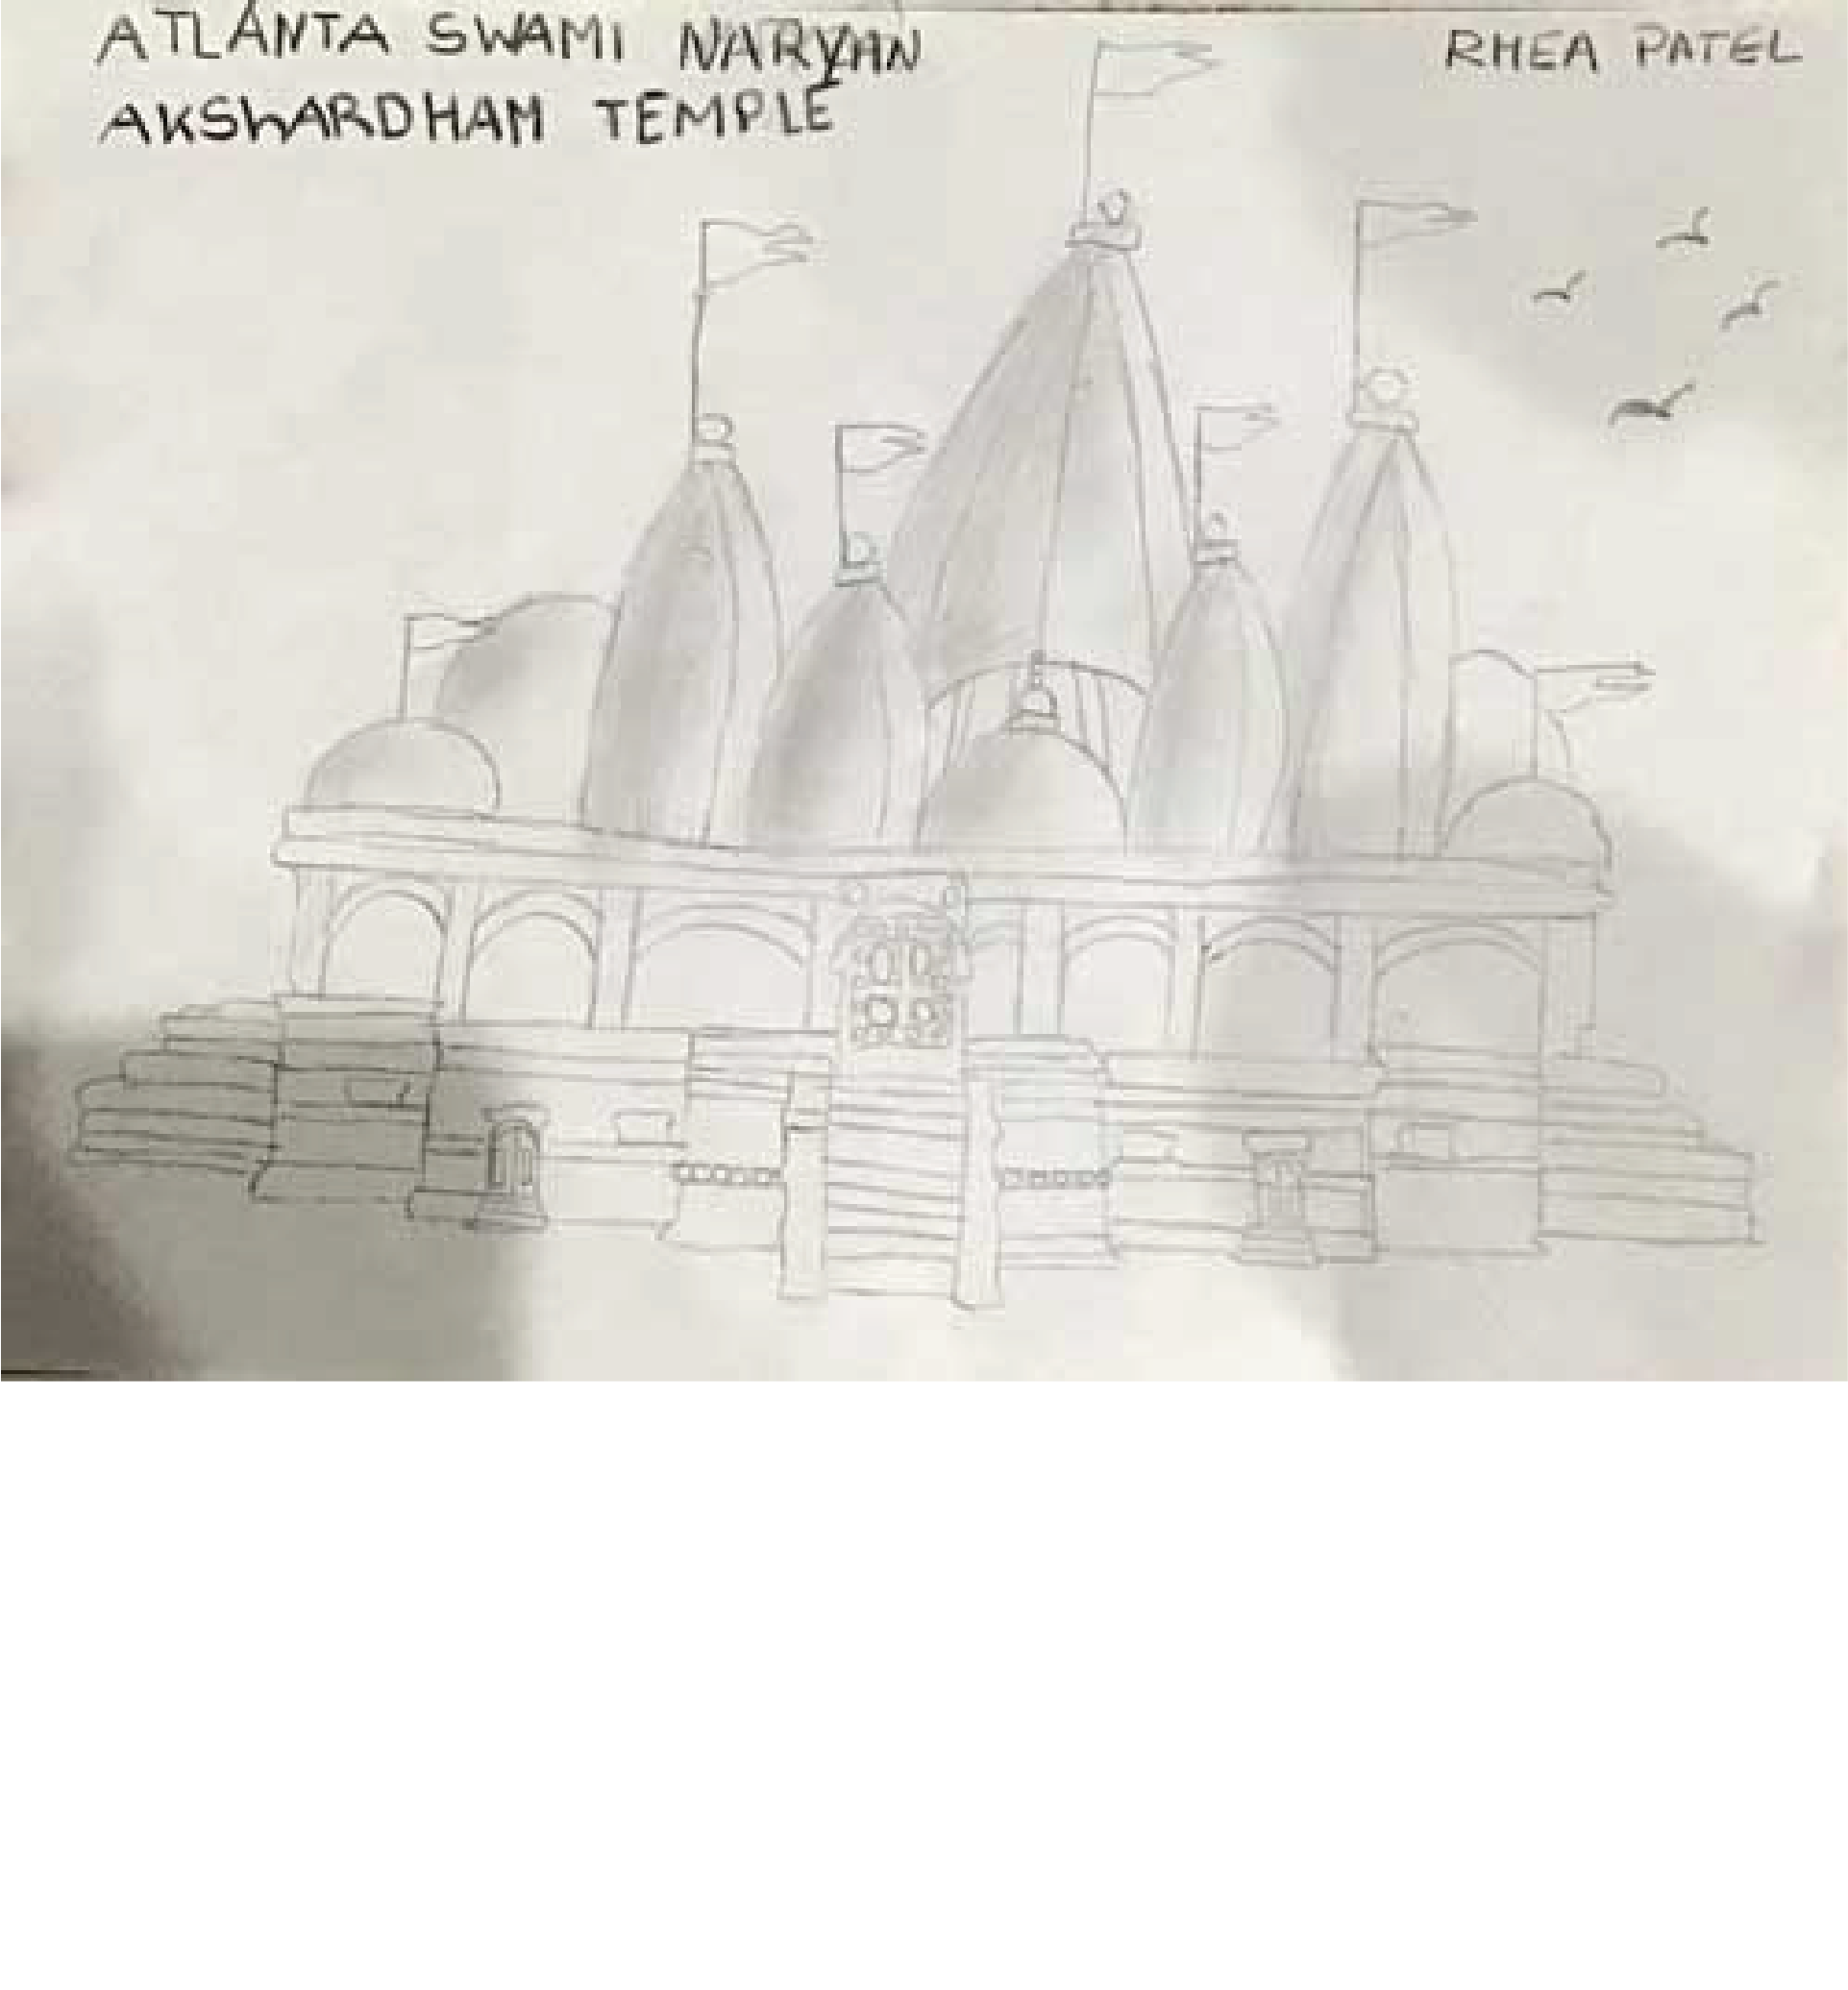 ATLANTA SWAMI NARYAN
AKSHARDHAM TEMPLE
RHEA PATEL